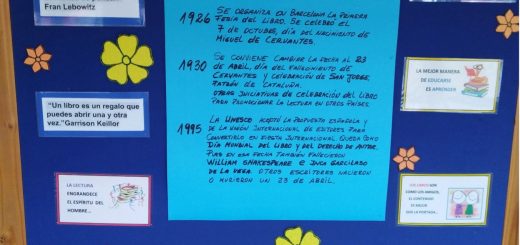 Fran Lebowitz
1926 SE ORGANIZA EN BARCELONA LA PRIMERA
FERIA DEL LIBRO. SE CELEBRÓ EL
7 DE OCTUBRE, DÍA DEL NACIMIENTO DE
MIGUEL DE CERVANTES.
1930 SE CONVIENE CAMBIAR LA FECHA AL 23
DE ABRIL, DÍA DEL FALLECIMIENTO DE
CERVANTES Y CELEBRACIÓN DE SAN JORGE,
PATRÓN DE CATALUÑA.
OTRAS INICIATIVAS DE CELEBRACIÓN DEL LIBRO
PARA PROMOCIONAR LA LECTURA EN OTROS PAÍSES.
1995 LA UNESCO ACEPTÓ LA PROPUESTA ESPAÑOLA Y
DE LA UNIÓN INTERNACIONAL DE EDITORES PARA
CONVERTIRLO EN FIESTA INTERNACIONAL. QUEDA COMO
DÍA MUNDIAL DEL LIBRO Y DEL DERECHO DE AUTOR,
PUES EN ESA FECHA TAMBIÉN FALLECIERON
WILLIAM SHAKESPEARE E INCA GARCILASO
DE LA VEGA. OTROS ESCRITORES NACIERON
O MURIERON UN 23 DE ABRIL.
"Un libro es un regalo que
puedes abrir una y otra
vez."Garrison Keillor
LA LECTURA
ENGRANDECE
EL ESPÍRITU DEL
HOMBRE...
LA MEJOR MANERA
DE EDUCARTE
ES APRENDER
LOS LIBROS SON
COMO LOS AMIGOS,
EL CONTENIDO
ES MEJOR
QUE LA PORTADA...